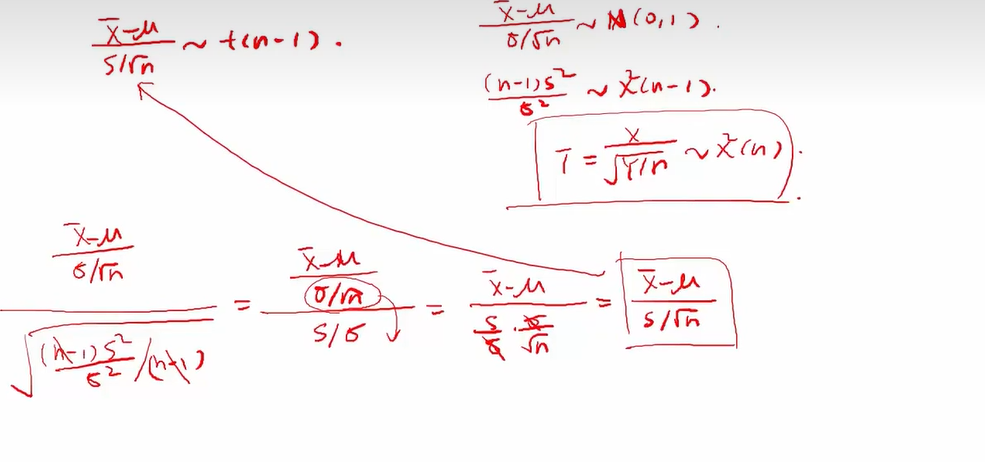 x̄-μ / S/√n ~ t(n-1).
x̄-μ / σ/√n ~ N(0,1).
(n-1)S² / σ² ~ χ²(n-1).
T = X / √Y/n ~ χ²(n).
x̄-μ / σ/√n / √(n-1)S²/σ² /(n-1) = x̄-μ / σ/√n / S/σ = x̄-μ / S/σ · σ/√n = x̄-μ / S/√n